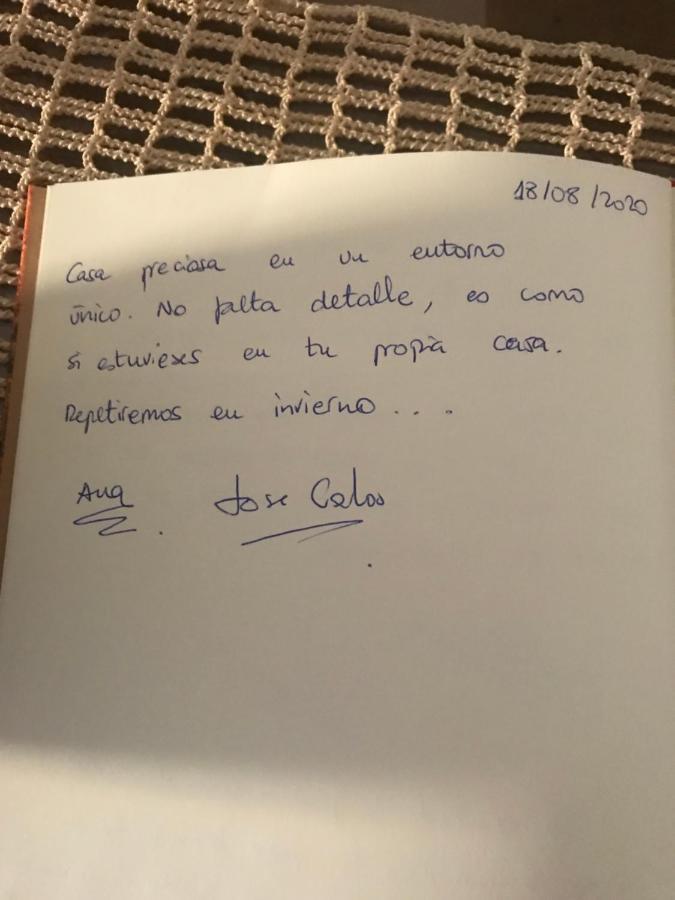 18/08/2020
Casa preciosa en un entorno
único. No falta detalle, es como
si estuvieses en tu propia casa.
Repetiremos en invierno ...
Ana Jose Carlos